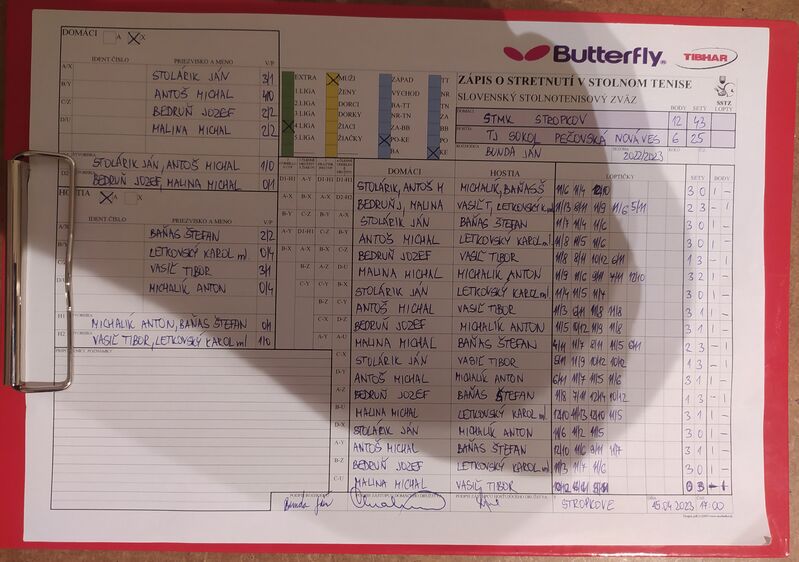 DOMÁCI A X
Butterfly TIBHAR
IDENT.ČÍSLO PRIEZVISKO A MENO V/P
A/X STOLÁRIK JÁN 3/1
B/Y ANTOŠ MICHAL 4/0
C/Z BEDRUŇ JOZEF 2/2
D/U MALINA MICHAL 2/2
EXTRA MUŽI ZÁPAD TT
1.LIGA ŽENY VÝCHOD NR
2.LIGA DORCI BA-TT TN
3.LIGA DORKY NR-TN ZA
4.LIGA ŽIACI ZA-BB
5.LIGA ŽIAČKY PO-KE
BA KE
ZÁPIS O STRETNUTÍ V STOLNOM TENISE
SLOVENSKÝ STOLNOTENISOVÝ ZVÄZ
SSTZ
DOMÁCI BODY SETY LOPTY
STMK STROPKOV 12 43
HOSTIA
TJ SOKOL PEČOVSKÁ NOVÁ VES 6 25
ROZHODCA SEZÓNA
BUNDA JÁN 2022/2023
STOLÁRIK JÁN, ANTOŠ MICHAL 1/0
D2 BEDRUŇ JOZEF, MALINA MICHAL 0/1
HOSTIA A X
IDENT.ČÍSLO PRIEZVISKO A MENO V/P
A/X BAŇAS ŠTEFAN 2/2
B/Y LETKOVSKÝ KAROL ml 0/4
VASIČ TIBOR 3/1
MICHALÍK ANTON 0/4
H1 MICHALÍK ANTON, BAŇAS ŠTEFAN 0/1
H2 VASIČ TIBOR, LETKOVSKÝ KAROL ml 1/0
DOMÁCI HOSTIA LOPTIČKY SETY BODY
STOLÁRIK, ANTOŠ M MICHALIK, BAŇAS Š 11/6 11/4 12/10 3 0 1 -
BEDRUŇ J, MALINA VASIČ T, LETKOVSKÝ K ml 11/6 5/11 2 3 - 1
STOLÁRIK JÁN BAŇAS ŠTEFAN 11/7 11/4 11/6 3 0 1 -
ANTOŠ MICHAL LETKOVSKÝ KAROL ml 11/8 11/5 11/6 3 0 1 -
BEDRUŇ JOZEF VASIČ TIBOR 11/8 8/11 10/12 6/11 1 3 - 1
MALINA MICHAL MICHALÍK ANTON 11/9 11/6 9/11 7/11 12/10 3 2 1 -
STOLÁRIK JÁN LETKOVSKÝ KAROL ml 11/4 11/5 11/7 3 0 1 -
ANTOŠ MICHAL VASIČ TIBOR 11/3 9/11 11/8 11/8 3 1 1 -
BEDRUŇ JOZEF MICHALÍK ANTON 11/5 10/12 11/9 11/8 3 1 1 -
MALINA MICHAL BAŇAS ŠTEFAN 4/11 11/7 8/11 11/5 6/11 2 3 - 1
STOLÁRIK JÁN VASIČ TIBOR 8/11 11/9 10/12 10/12 1 3 - 1
ANTOŠ MICHAL MICHALÍK ANTON 6/11 11/7 11/5 11/6 3 1 1 -
BEDRUŇ JOZEF BAŇAS ŠTEFAN 11/8 7/11 12/14 10/12 1 3 - 1
MALINA MICHAL LETKOVSKÝ KAROL ml 12/10 11/13 12/10 11/5 3 1 1 -
STOLÁRIK JÁN MICHALÍK ANTON 11/6 11/2 11/5 3 0 1 -
ANTOŠ MICHAL BAŇAS ŠTEFAN 12/10 11/6 9/11 11/7 3 1 1 -
BEDRUŇ JOZEF LETKOVSKÝ KAROL ml 11/3 11/7 11/6 3 0 1 -
MALINA MICHAL VASIČ TIBOR 10/12 0 3 - 1
PRIPOMIENKY, POZNÁMKY
Bunda Ján STROPKOVE 15.04.2023 17:00